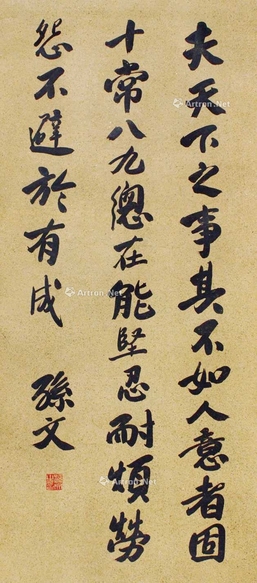 夫天下之事其不如人意者固
十常八九總在能堅忍耐煩勞
怨不避於有成
孫文
Artron.Net
Artron.Net
Artron.Net
Artron.Net